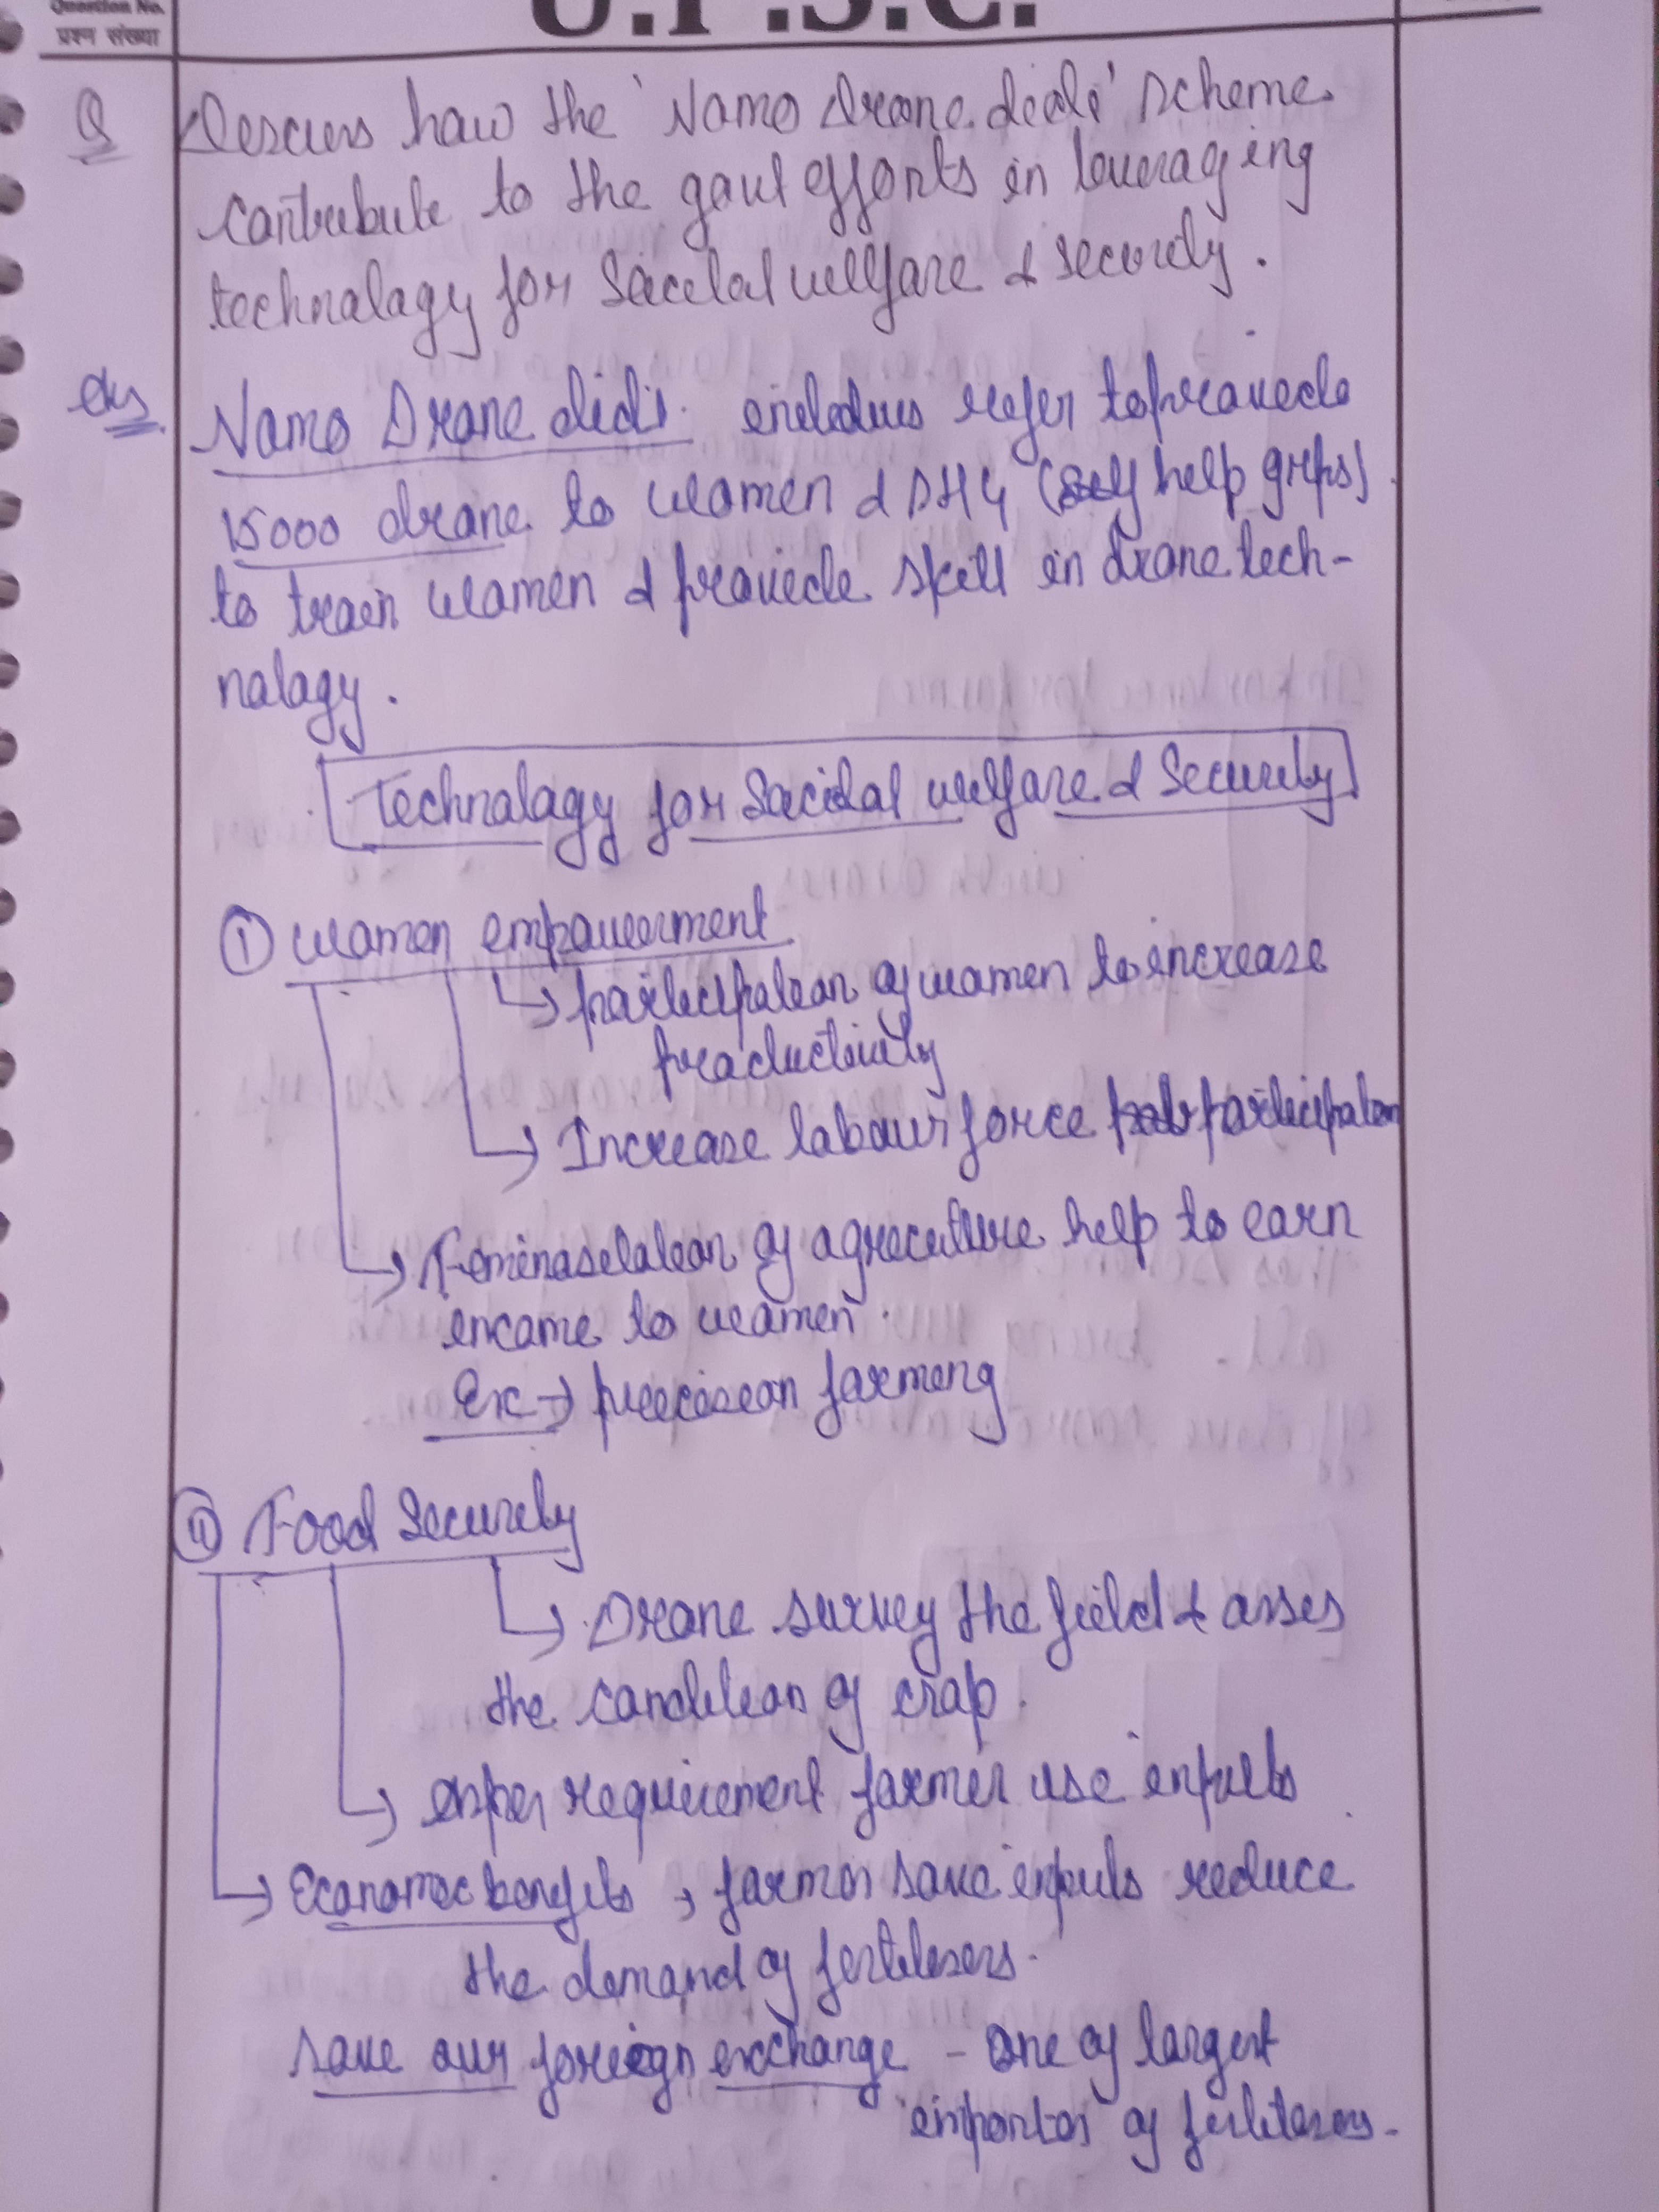 Question No.
प्रश्न संख्या
U.P.S.C.
Q Descuss how the 'Namo Drone didi' scheme
contribute to the govt efforts in leveraging
technology for Social welfare & security.
Ans Namo Drone didi refer to provide
15000 drone to women & SHG (Self help grps)
to train women & provide skill in drone tech-
nology.
Technology for Social welfare & Security
① women empowerment
↳ participation of women to increase
productivity
↳ Increase labour force participation
↳ Feminasetation of agriculture help to earn
income to women.
Ex → precision farming
② Food Security
↳ Drone survey the field & asses
the condition of crop.
↳ asper requirement farmer use inputs
↳ Economic benefits, farmer save inputs reduce
the demand of fertilisers.
save our foreign exchange - One of largest
importer of fertilisers.